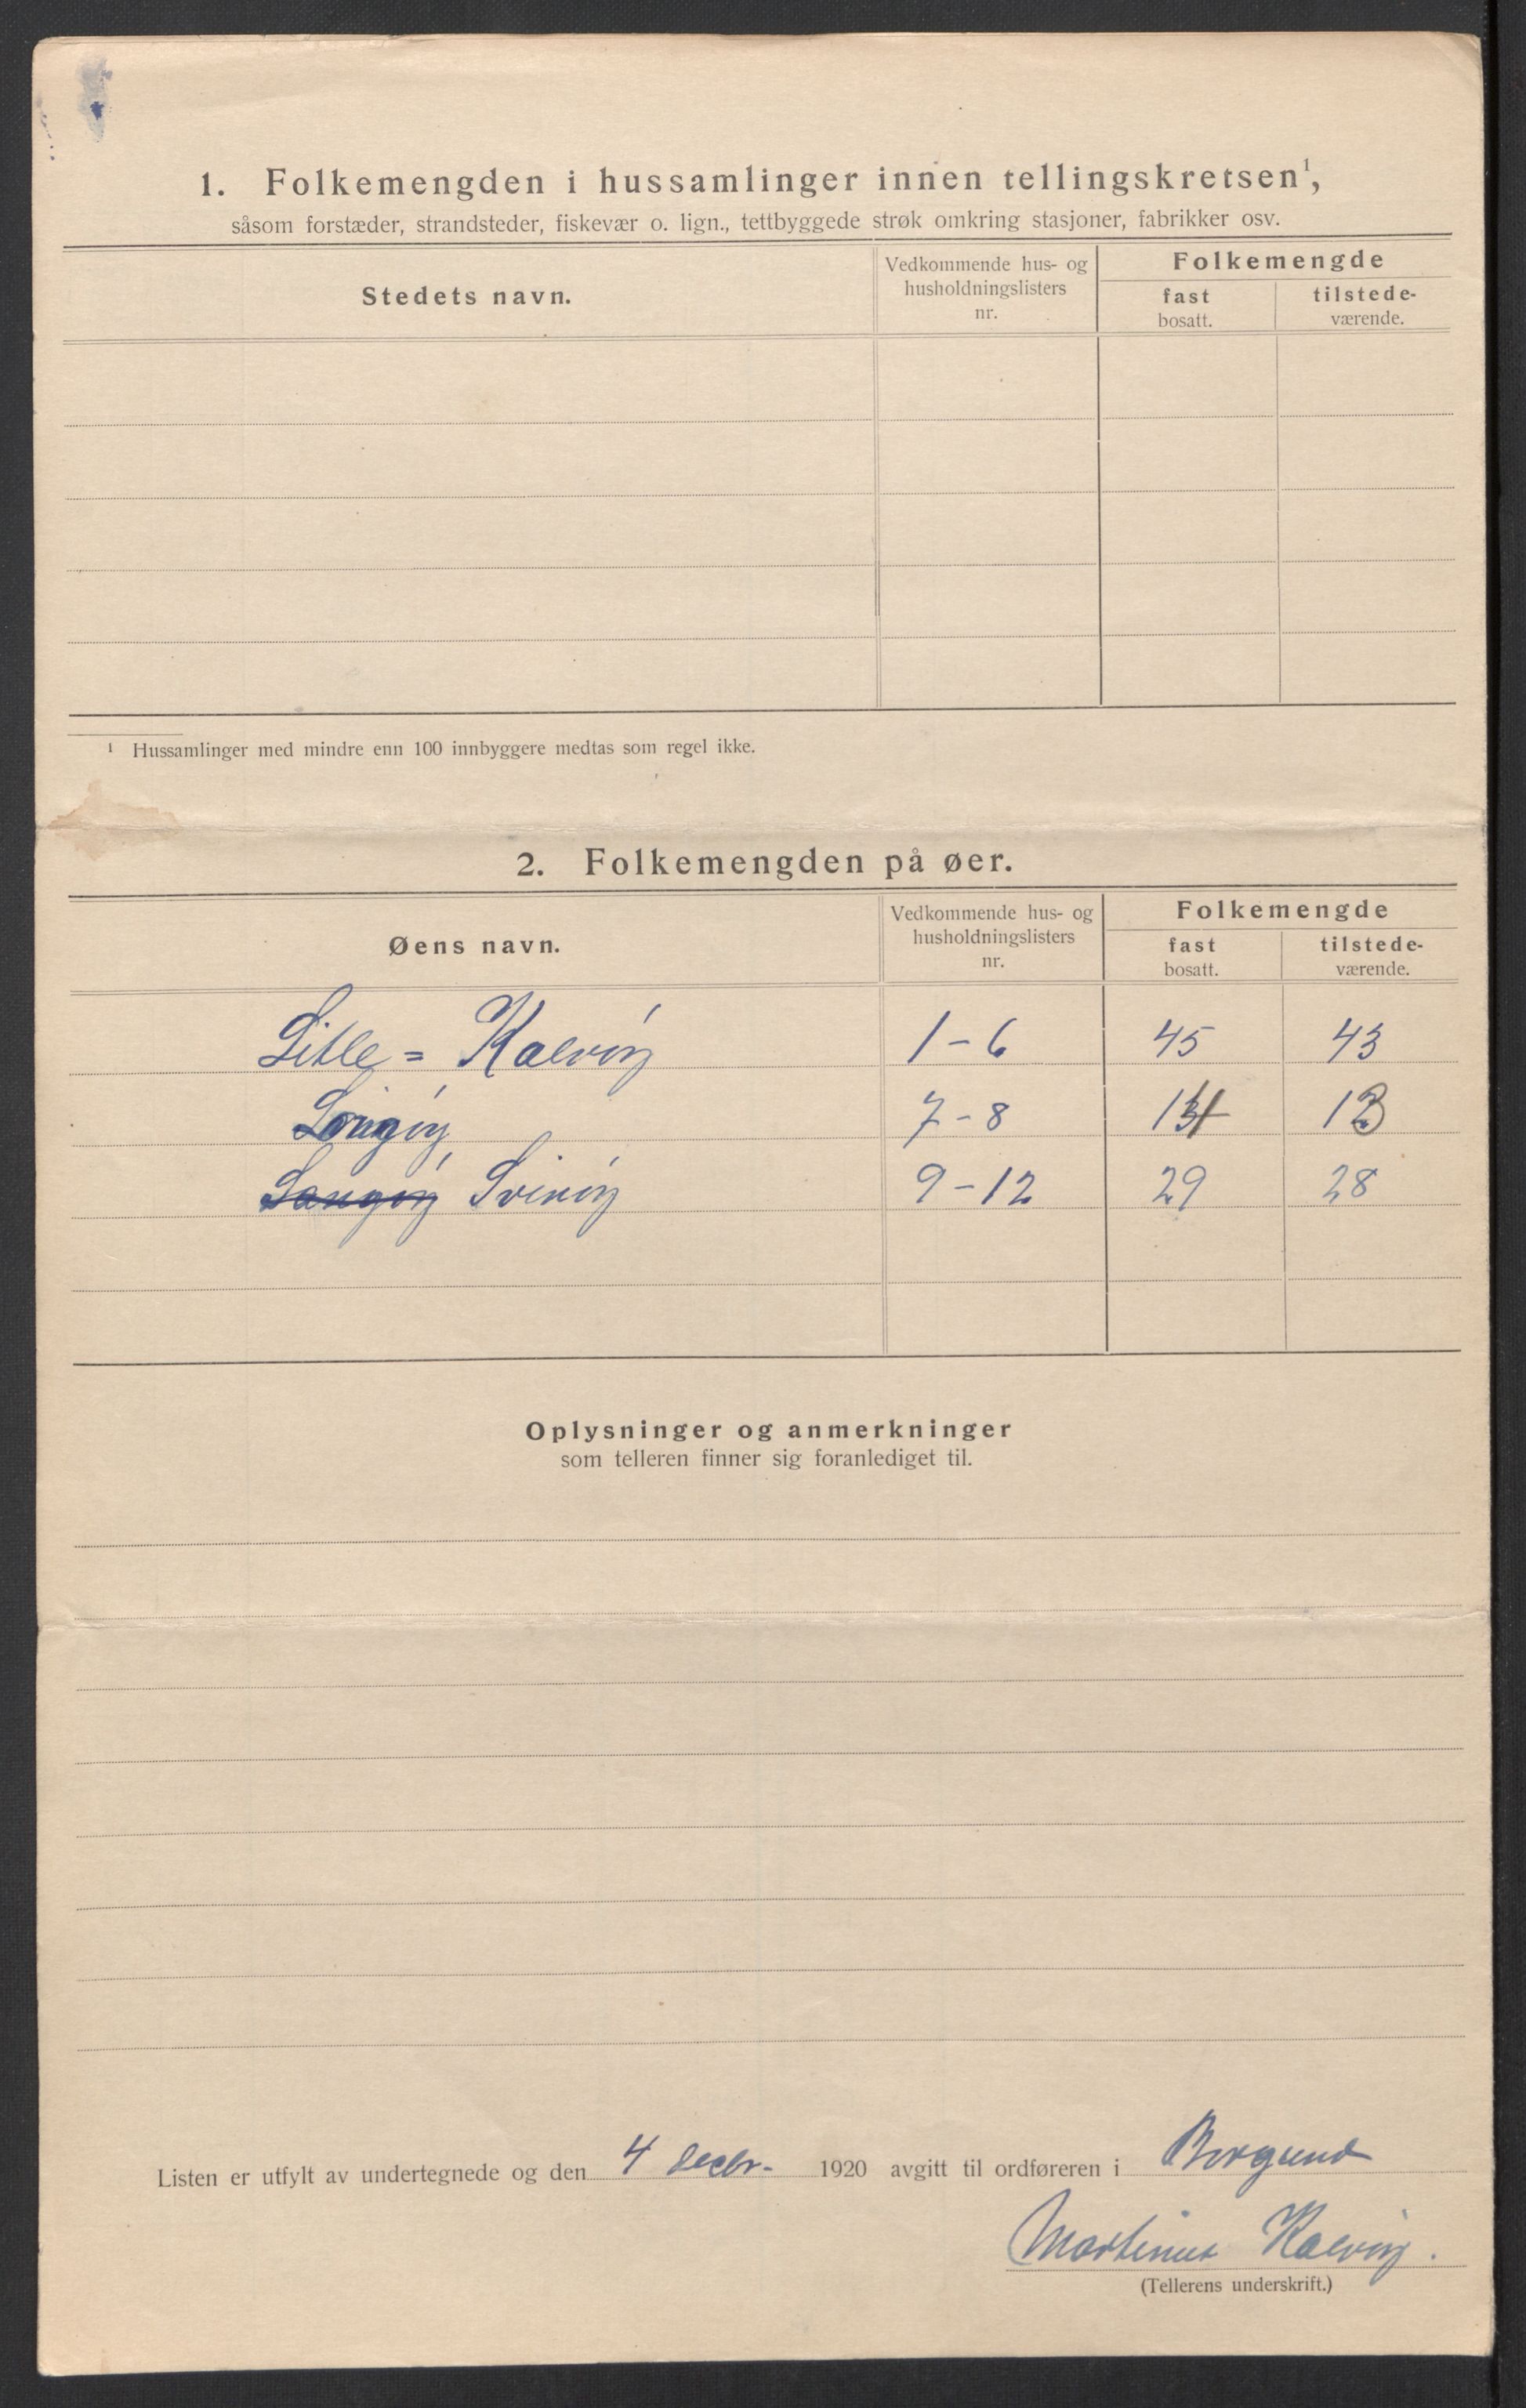 1. Folkemengden i hussamlinger innen tellingskretsen¹,
såsom forstæder, strandsteder, fiskevær o. lign., tettbyggede strøk omkring stasjoner, fabrikker osv.
Stedets navn.
Vedkommende hus- og
husholdningslisters
nr.
Folkemengde
fast
bosatt.
tilstede-
værende.
¹ Hussamlinger med mindre enn 100 innbyggere medtas som regel ikke.
2. Folkemengden på øer.
Øens navn.
Vedkommende hus- og
husholdningslisters
nr.
Folkemengde
fast
bosatt.
tilstede-
værende.
Litle = Kalvöy 1-6 45 43
Langöy 7-8
Langöy Svinöy 9-12 29 28
Oplysninger og anmerkninger
som telleren finner sig foranlediget til.
Listen er utfylt av undertegnede og den 4 decbr. 1920 avgitt til ordføreren i Borgund
Martinus Kalvöy.
(Tellerens underskrift.)